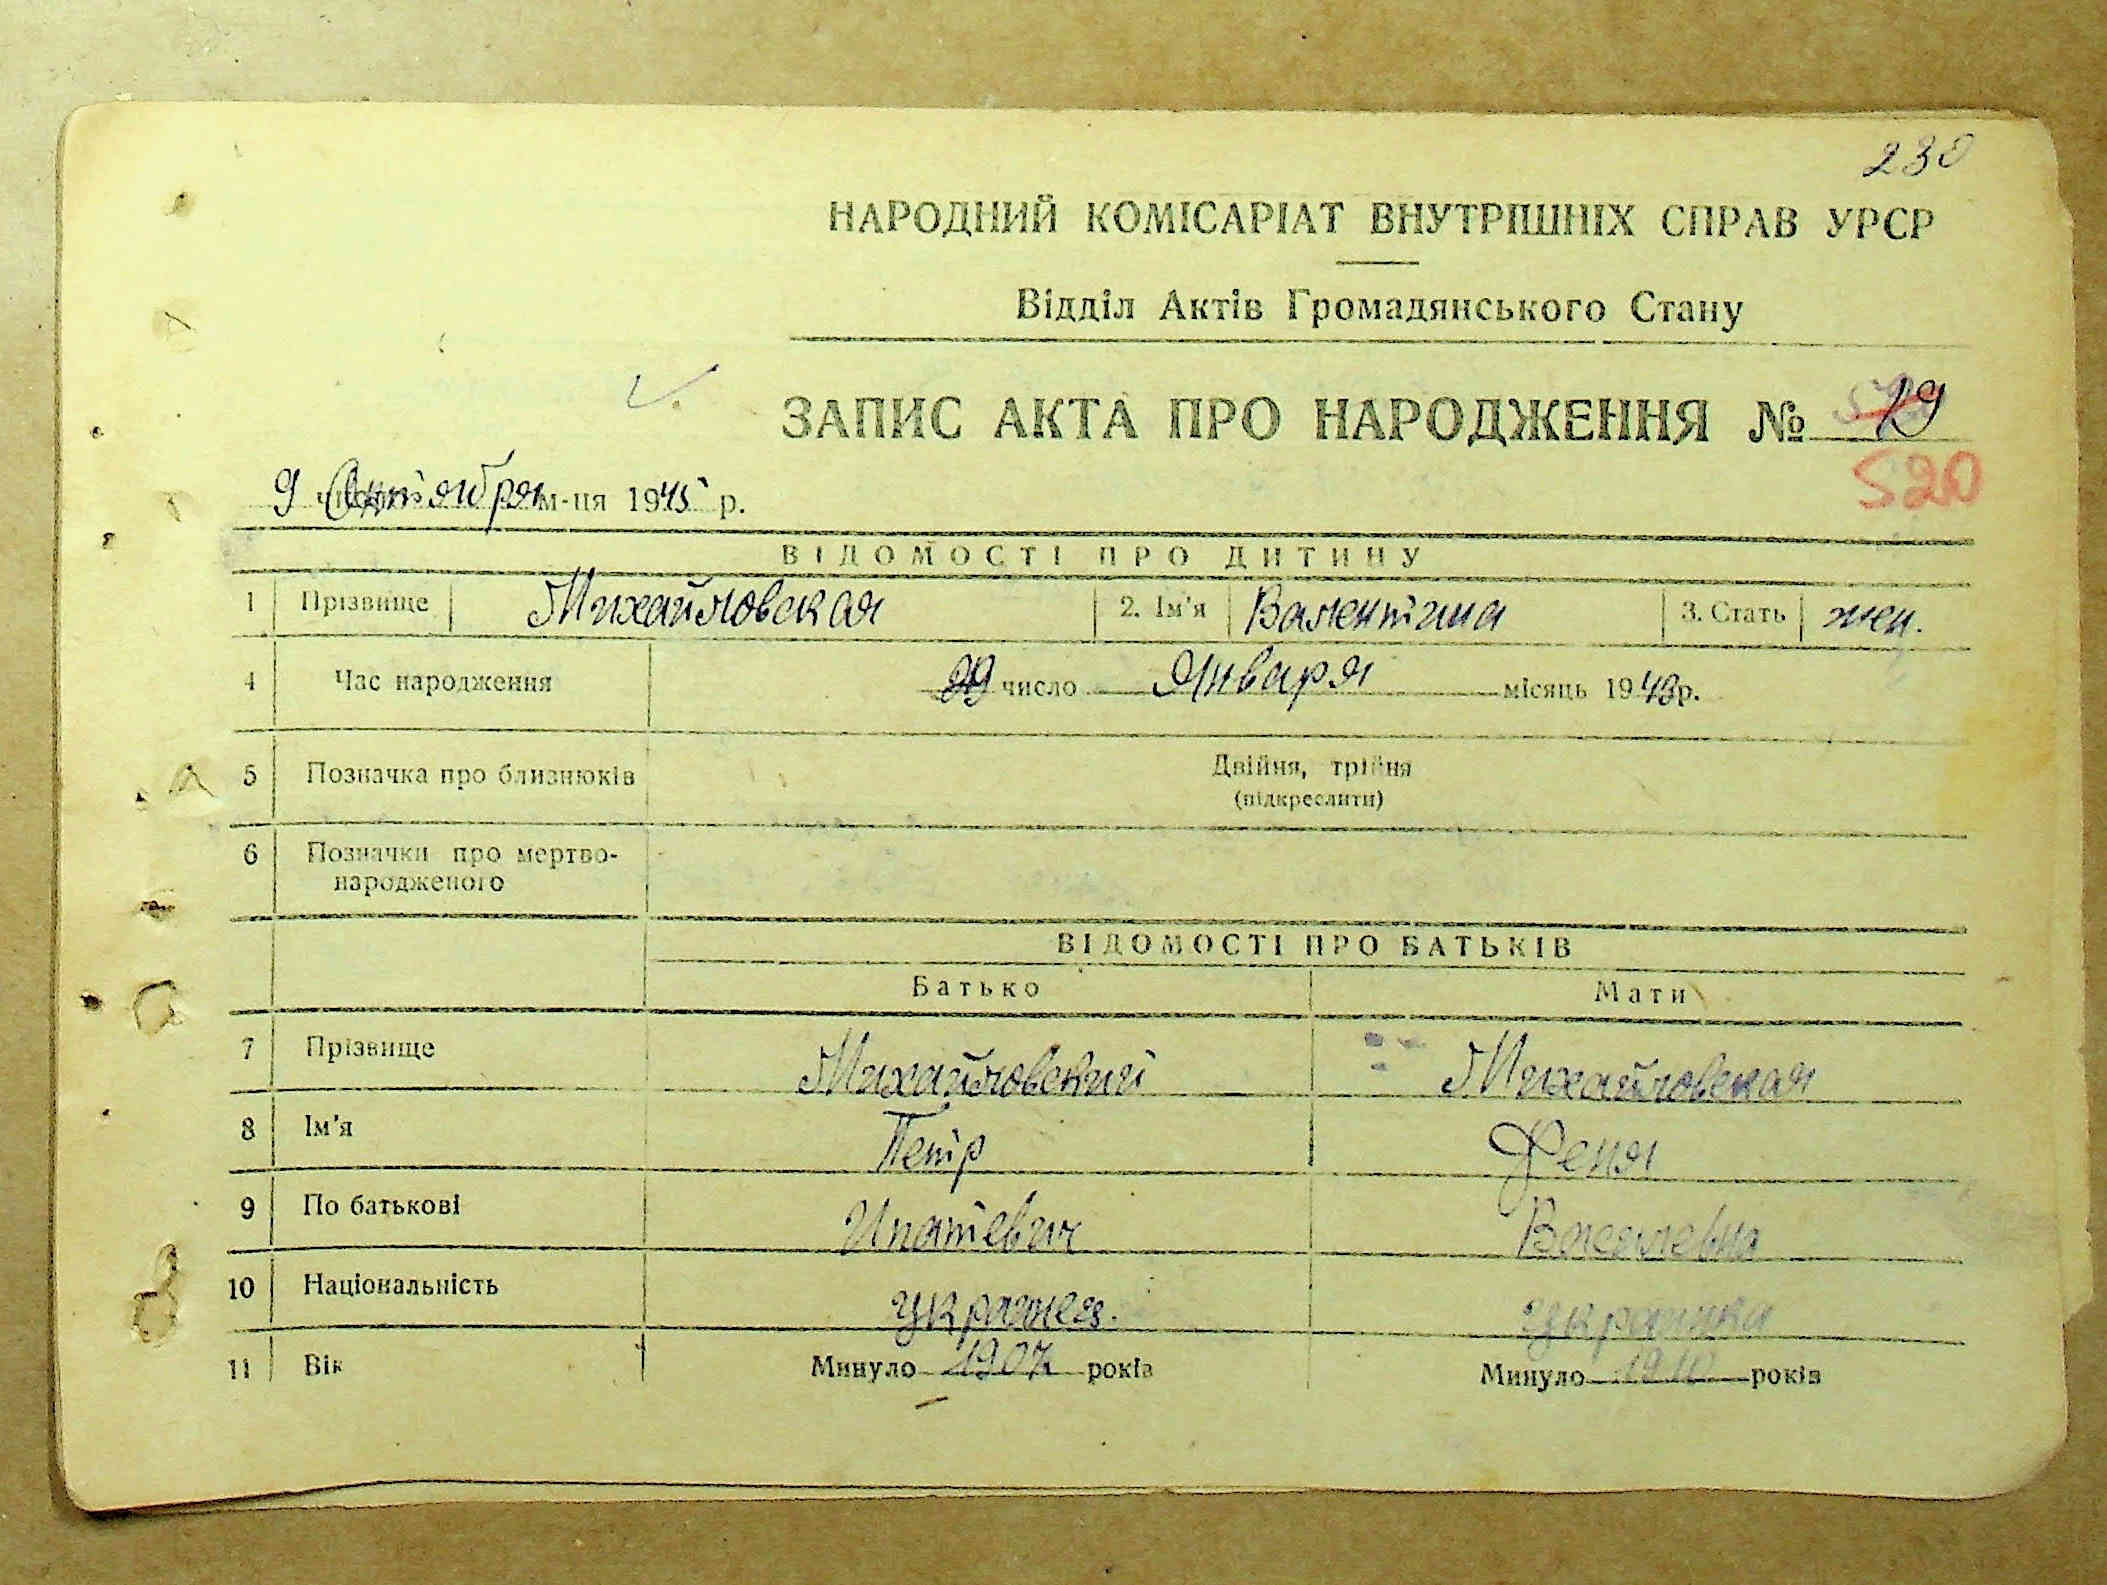 230
НАРОДНИЙ КОМІСАРІАТ ВНУТРІШНІХ СПРАВ УРСР
Відділ Актів Громадянського Стану
ЗАПИС АКТА ПРО НАРОДЖЕННЯ № 19
520
9 Октября м-ця 1945 р.
ВІДОМОСТІ ПРО ДИТИНУ
1 Прізвище Михайловская 2. Ім'я Валентина 3. Стать жен.
4 Час народження 29 число Января місяць 1943 р.
5 Позначка про близнюків Двійня, трійня
(підкреслити)
6 Позначки про мертво-
народженого
ВІДОМОСТІ ПРО БАТЬКІВ
Батько Мати
7 Прізвище Михайловский Михайловская
8 Ім'я Петр Феня
9 По батькові Ипатевич Василевна
10 Національність украинец. украинка
11 Вік Минуло 1907 років Минуло 1910 років